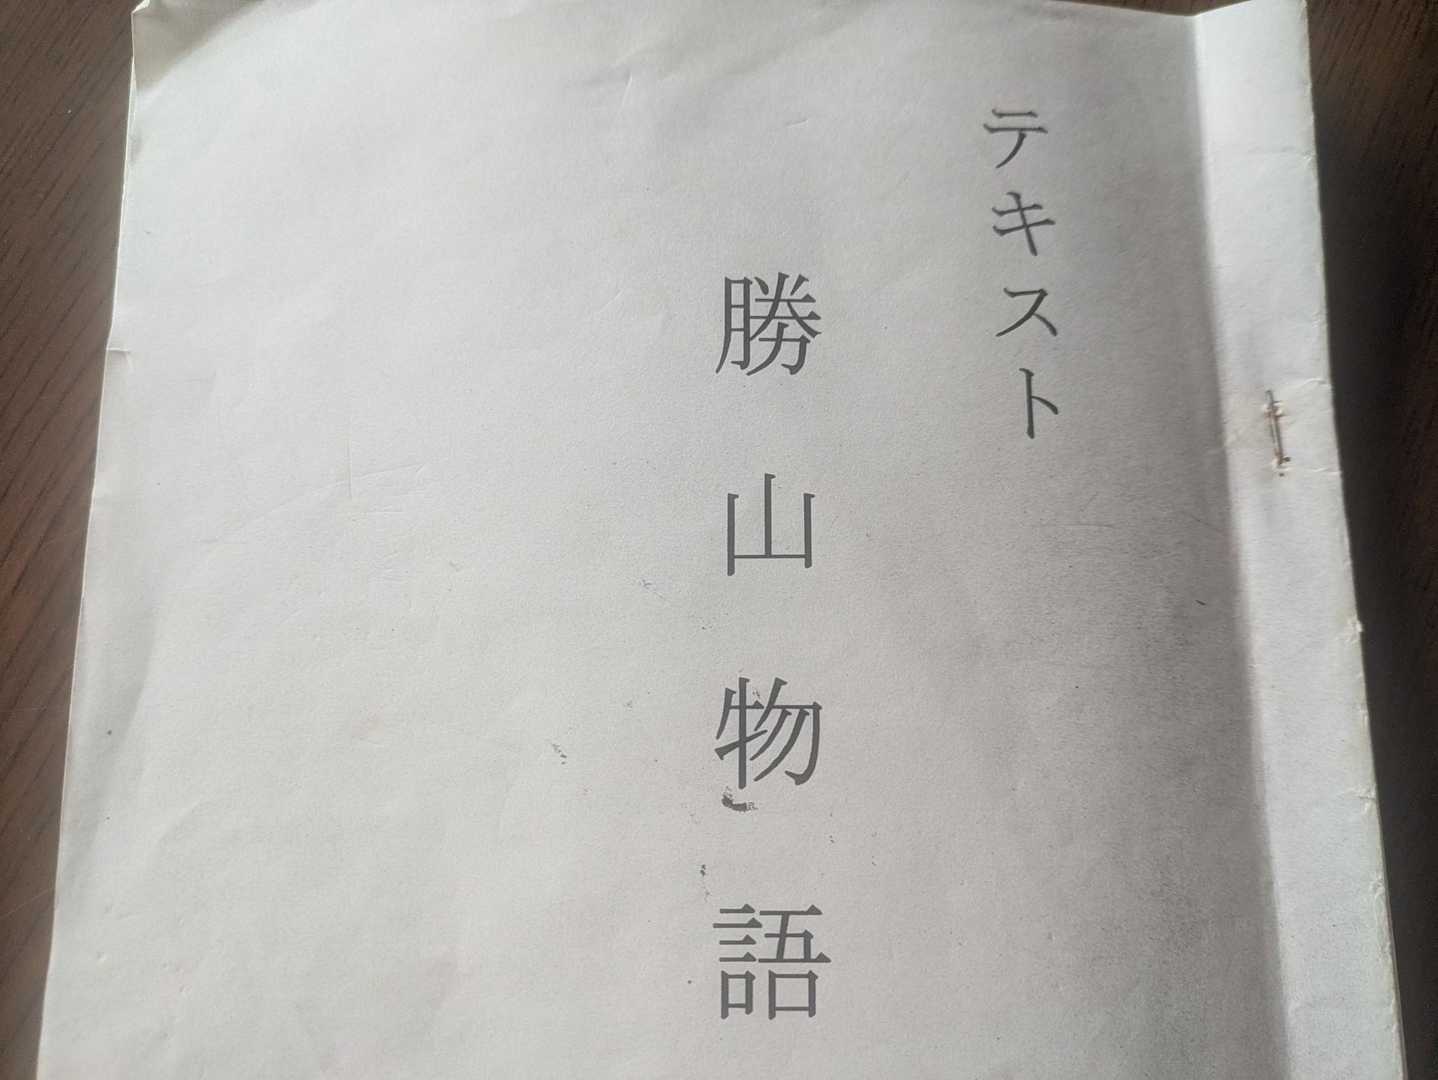 テキスト
勝山物語